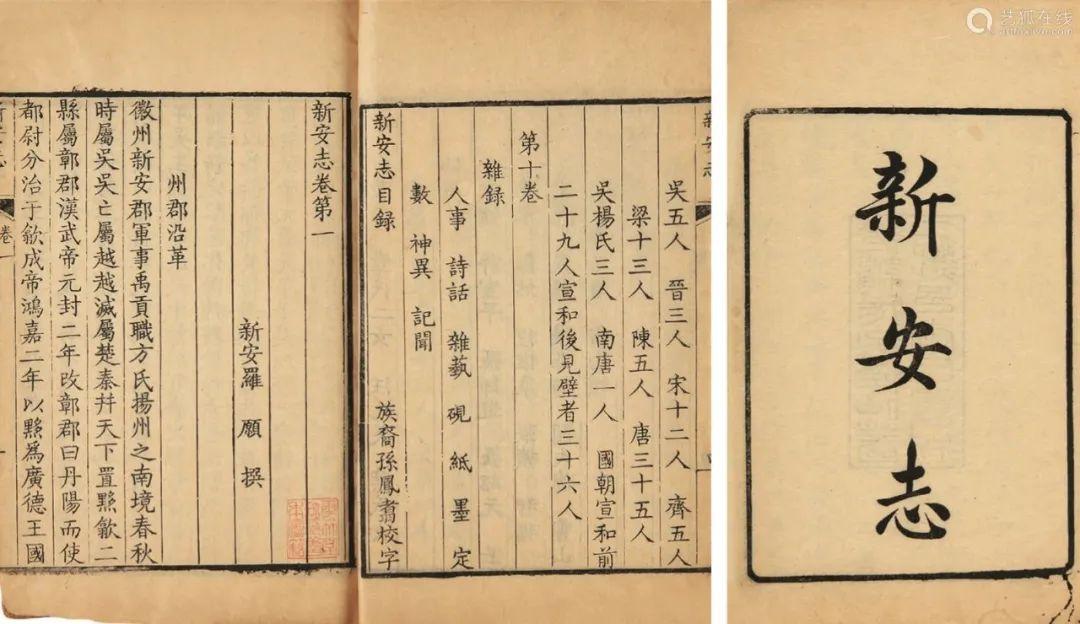 艺狐在线
artfoxlive.com
新安志
新安志
吳五人 晉三人 宋十二人 齊五人
梁十三人 陳五人 唐三十五人
吳楊氏三人 南唐一人 國朝宣和前
二十九人宣和後見壁者三十六人
第十卷
雜録
人事 詩話 雜藝 硯 紙 墨 定
數 神異 記聞
新安志目録 族裔孫鳳翥校字
新安志卷第一
新安羅 願 撰
州郡沿革
徽州新安郡軍事禹貢職方氏揚州之南境春秋
時屬吳吳亡屬越越滅屬楚秦幷天下置黟歙二
縣屬鄣郡漢武帝元封二年改鄣郡曰丹陽而使
都尉分治于歙成帝鴻嘉二年以黟爲廣德王國
卷一